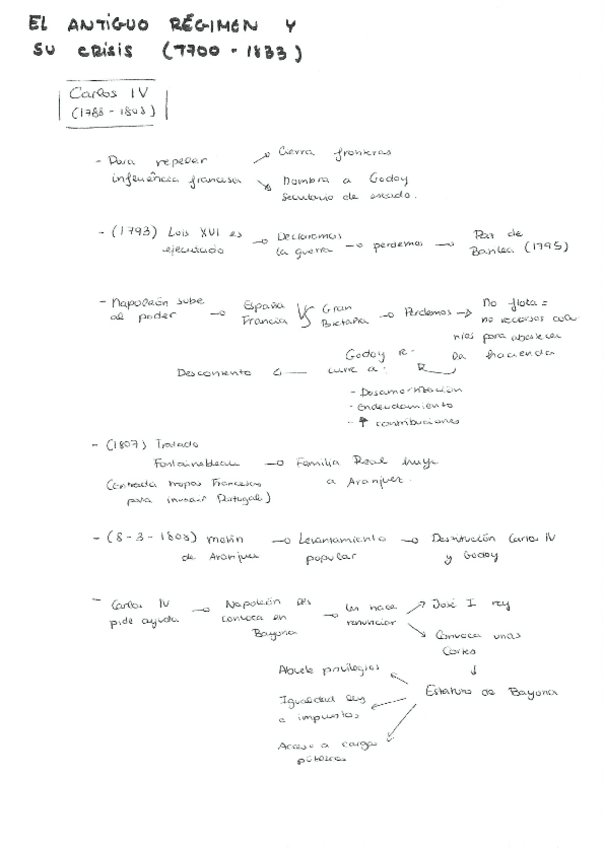 EL ANTIGUO RÉGIMEN Y
SU CRISIS (1700 - 1833)
Carlos IV
(1788 - 1808)
- Para repeler → Cierra fronteras
influencia francesa → Nombra a Godoy
secretario de estado.
- (1793) Luis XVI es → Declaramos → perdemos → Paz de
ejecutado la guerra Basilea (1795)
- Napoleón sube → España VS Gran → Perdemos → No flota =
al poder Francia Bretaña no recursos colo
nias para abastecer
Godoy re- la hacienda
Descontento ← curre a:
- Desamortización
- Endeudamiento
- ↑ contribuciones
- (1807) Tratado
Fontainebleau → Familia Real huye
(entrada tropas francesas a Aranjuez.
para invadir Portugal)
- (8-3-1808) Motín → Levantamiento → Destitución Carlos IV
de Aranjuez popular y Godoy
- Carlos IV → Napoleón les → les hace → José I rey
pide ayuda convoca en renunciar → Convoca unas
Bayona Cortes
↓
Abole privilegios ← Estatuto de Bayona
Igualdad ley
e impuestos
Acceso a cargos
públicos